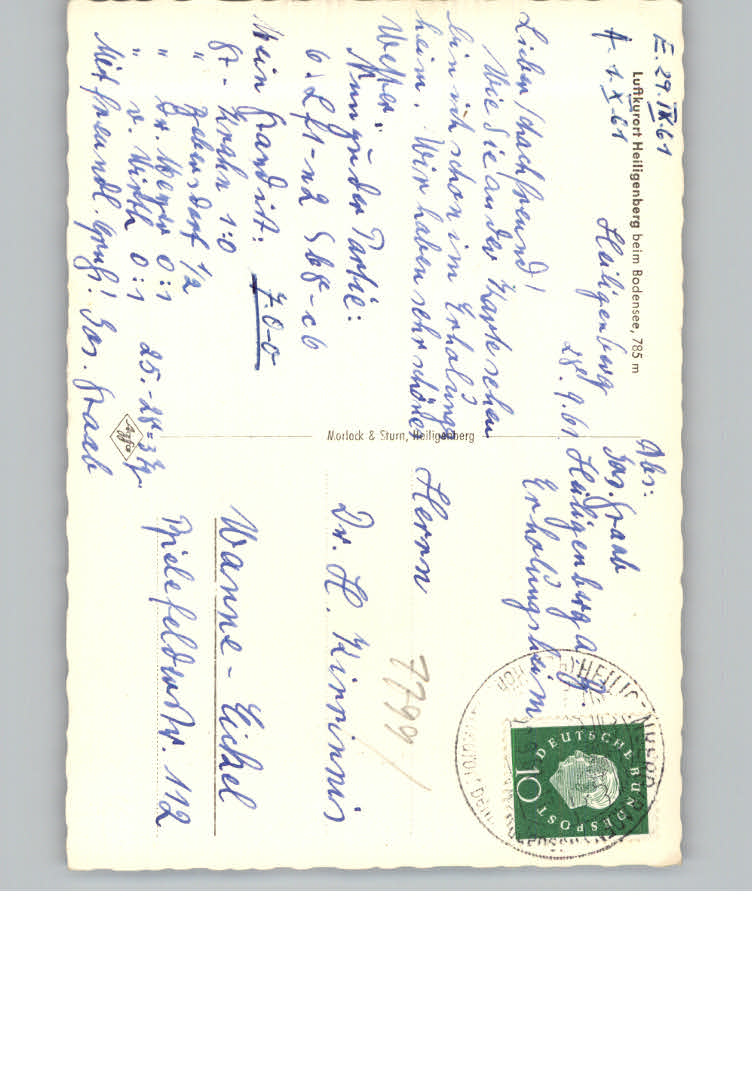 E. 29. IX. 61
A. 1. X. 61
Luftkurort Heiligenberg beim Bodensee, 785 m
Heiligenberg
28. 9. 61
Lieber Schachfreund!
Wie Sie aus der Karte sehen
bin ich schon im Erholungs
heim. Wir haben sehr schönes
Wetter.
Nun zu der Partie:
6. Lf1-e2 Sb8-c6
Mein Stand ist: 7. 0-0
gg. Krahn 1:0
" ½
" Dr. Meyer 0:1
" v. Wirth 0:1
25.-28. = 3 Tg.
Mit freundl. Gruß! Jos. Graab
Agfa
Morlock & Sturn, Heiligenberg
Abs:
Jos. Graab
Heiligenberg
Erholungsheim
Herrn
Dr. H. Kirrinnis
Wanne-Eickel
Bielefelderstr. 112
7799/
DEUTSCHE BUNDESPOST
10
HEILIGENBERG